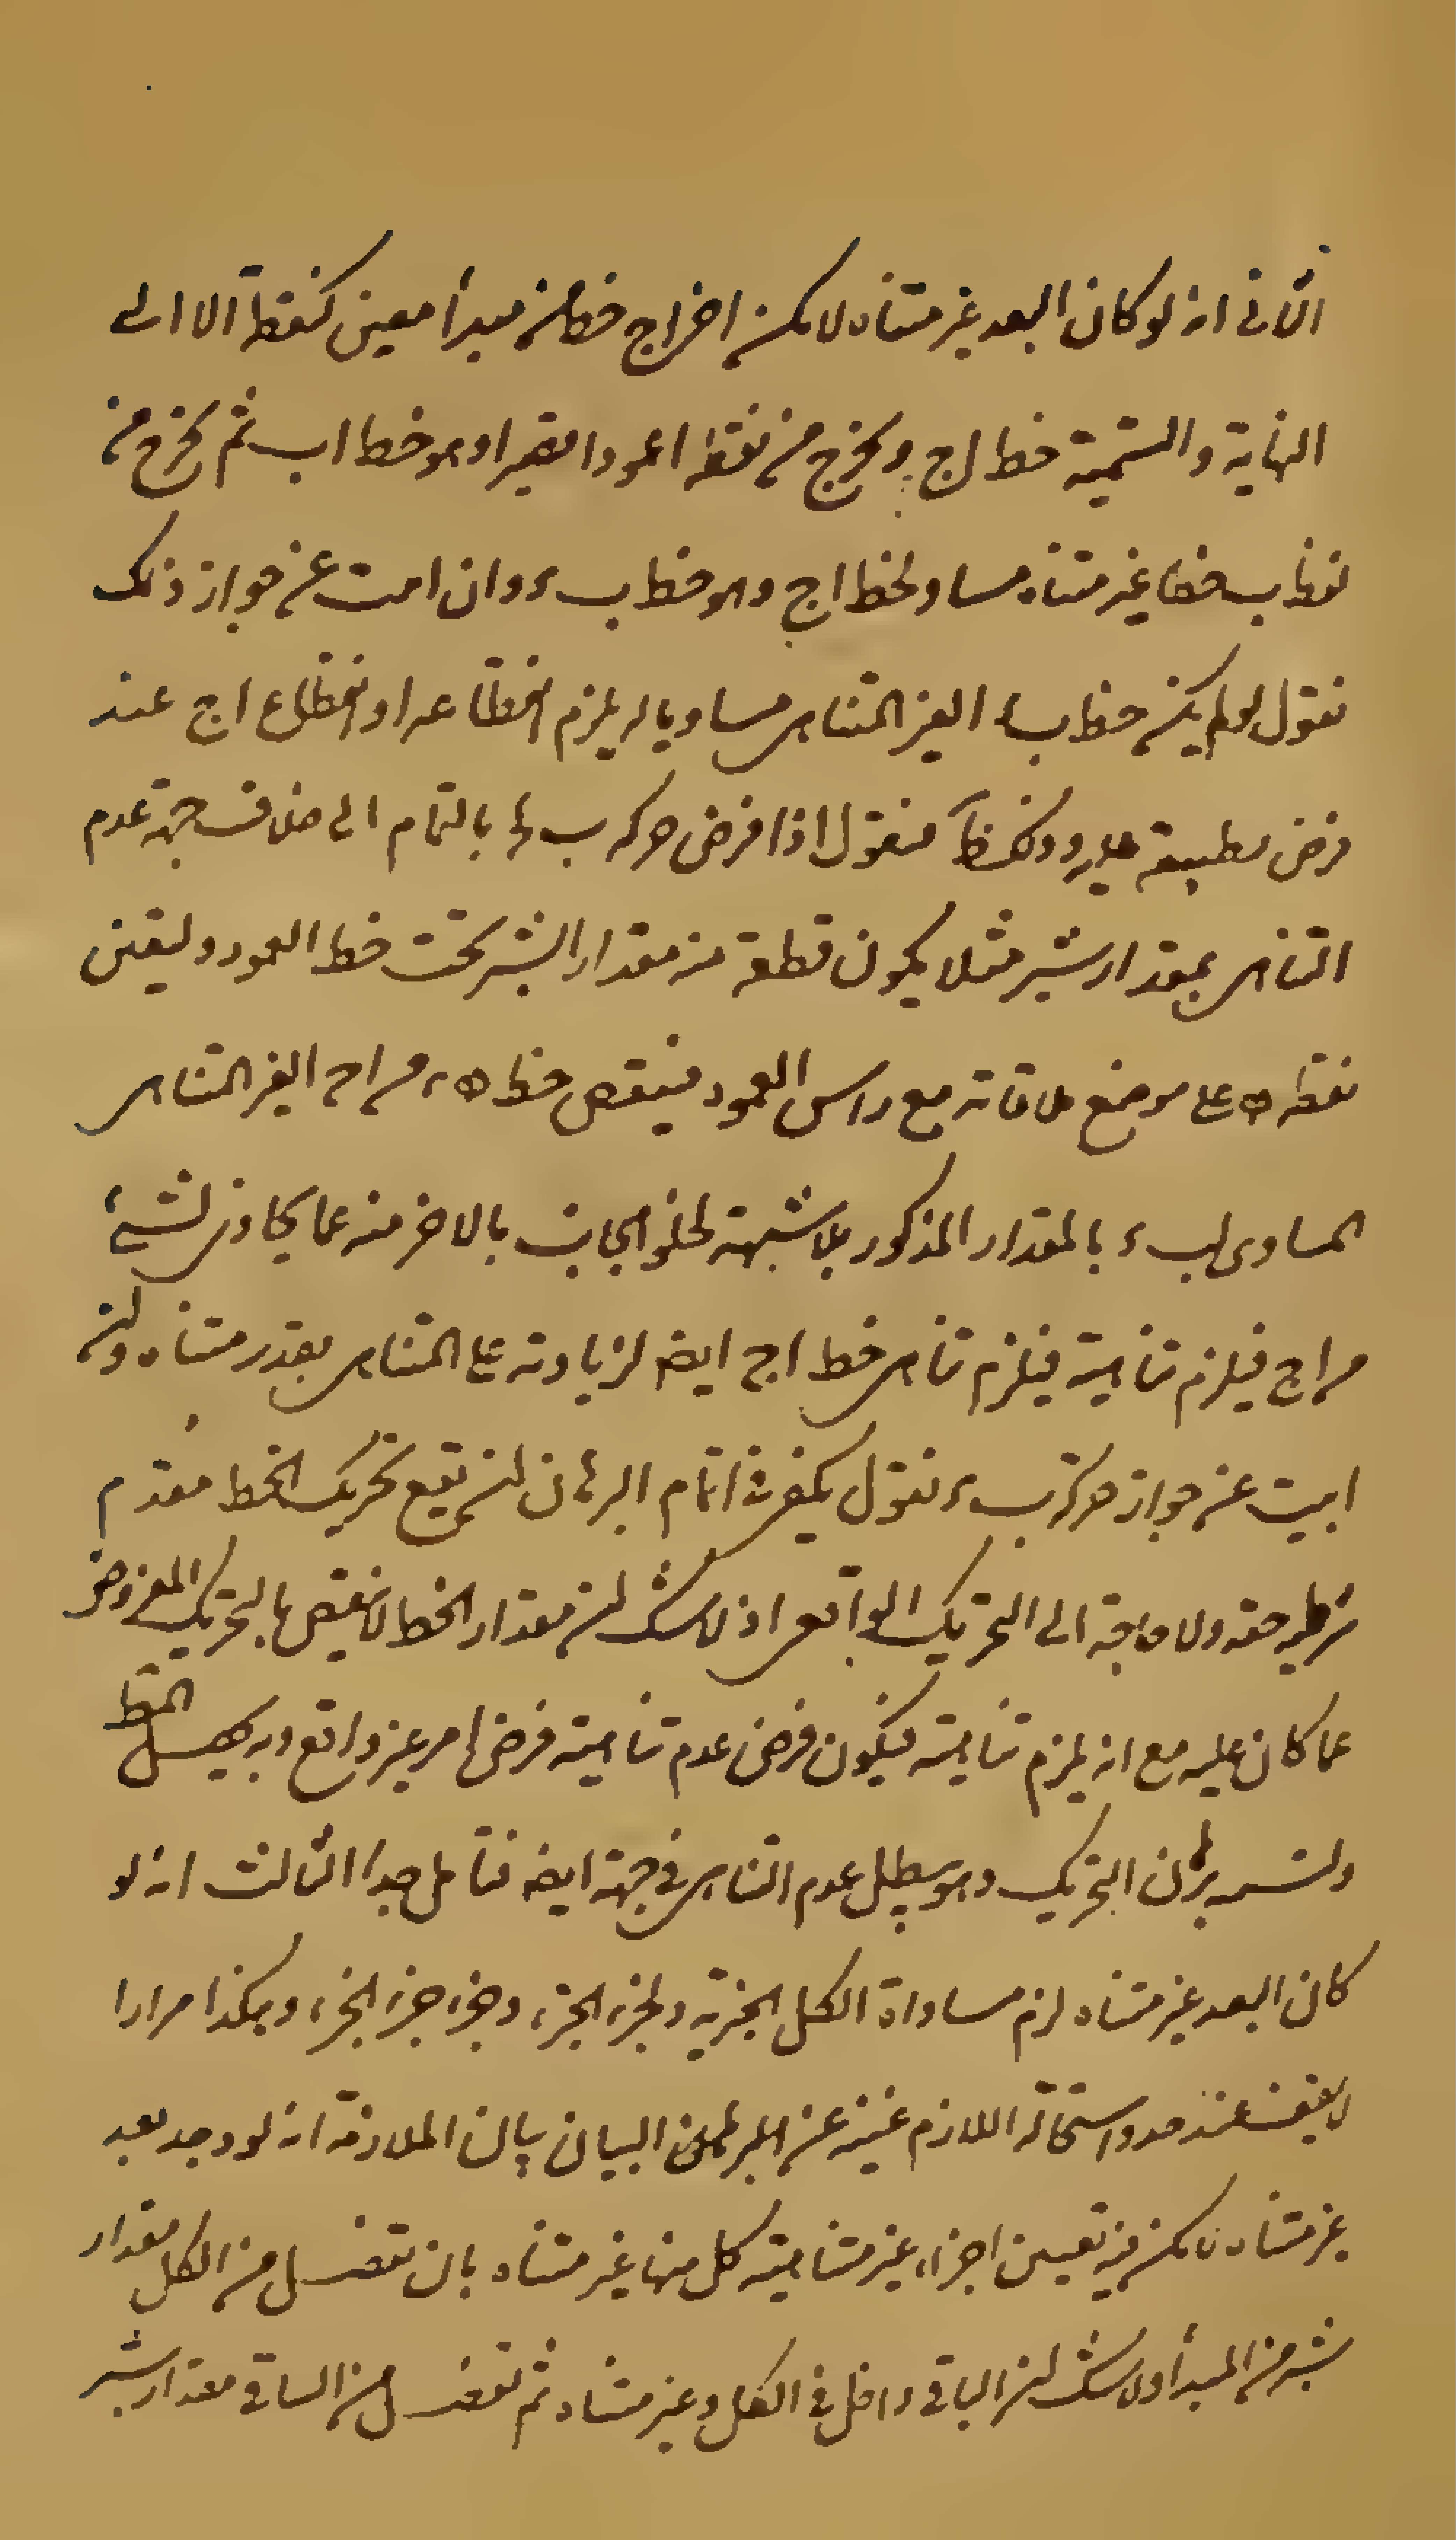 الثانى انه لو كان البعد غير متناه لامكن اخراج خط من مبدأ معين كنقطة ا لا الى
النهاية والتسميه خط اج ويخرج من نقطه ا عمودا قصيرا وهو خط اب ثم يخرج من
نقطه ب خطا غير متناه مساو لخط اج وهو خط ب ء وان ابيت عن جواز ذلك
فنقول لو لم يكن خط ب ء الغير المتناهى مساويا له يلزم او انقطاع اج عند
فرض تطبيقه فنقول اذا فرض حركه ب ء بالتمام الى خلاف جهة عدم
التناهى بمقدار شبر مثلا يكون قطعة من مقدار الشبر تحت خط العمود وليعين
نقطه ه على موضع ملاقاته مع راس العمود فينقص خط ه ء من اج الغير المتناهى
المساوى لب ء بالمقدار المذكور بلا شبهة لخلو الجانب الاخر منه عما يحاذى لشئ
من اج فيلزم تناهيه فيلزم تناهى خط اج ايضا لزيادته على المتناهى بقدر متناه ولئن
ابيت عن جواز حركة ب ء نقول يكفى فى اتمام البرهان لن يقع تحريك الخط مقدم
شرطيه حقه ولا حاجة الى التحريك الواقعى اذ لا شك لن مقدار الخط لا ينقص بالتحريك المفروض
عما كان عليه مع انه يلزم تناهيه فيكون فرض عدم تناهيه فرض امر غير واقع وبه يحصل المط
ولنسمه برهان التحريك وهو يبطل عدم التناهى فى جهة ايضا فتأمل جدا الثالث انه لو
كان البعد غير متناه لزم مساواة الكل لجزئه ولجزء الجزء وجزء جزء الجزء وهكذا مرارا
لا يقف عند حد واستحالة اللازم غنيه عن البيان بيان الملازمة انه لو وجد بعد
غير متناه لامكن فيه تعيين اجزاء غير متناهيه كل منها غير متناه بان تفصل من الكل مقدار
شبر من المبدأ ولا شك لن الباقى داخل فى الكل وغير متناه ثم تفصل من الباقى مقدار شبر